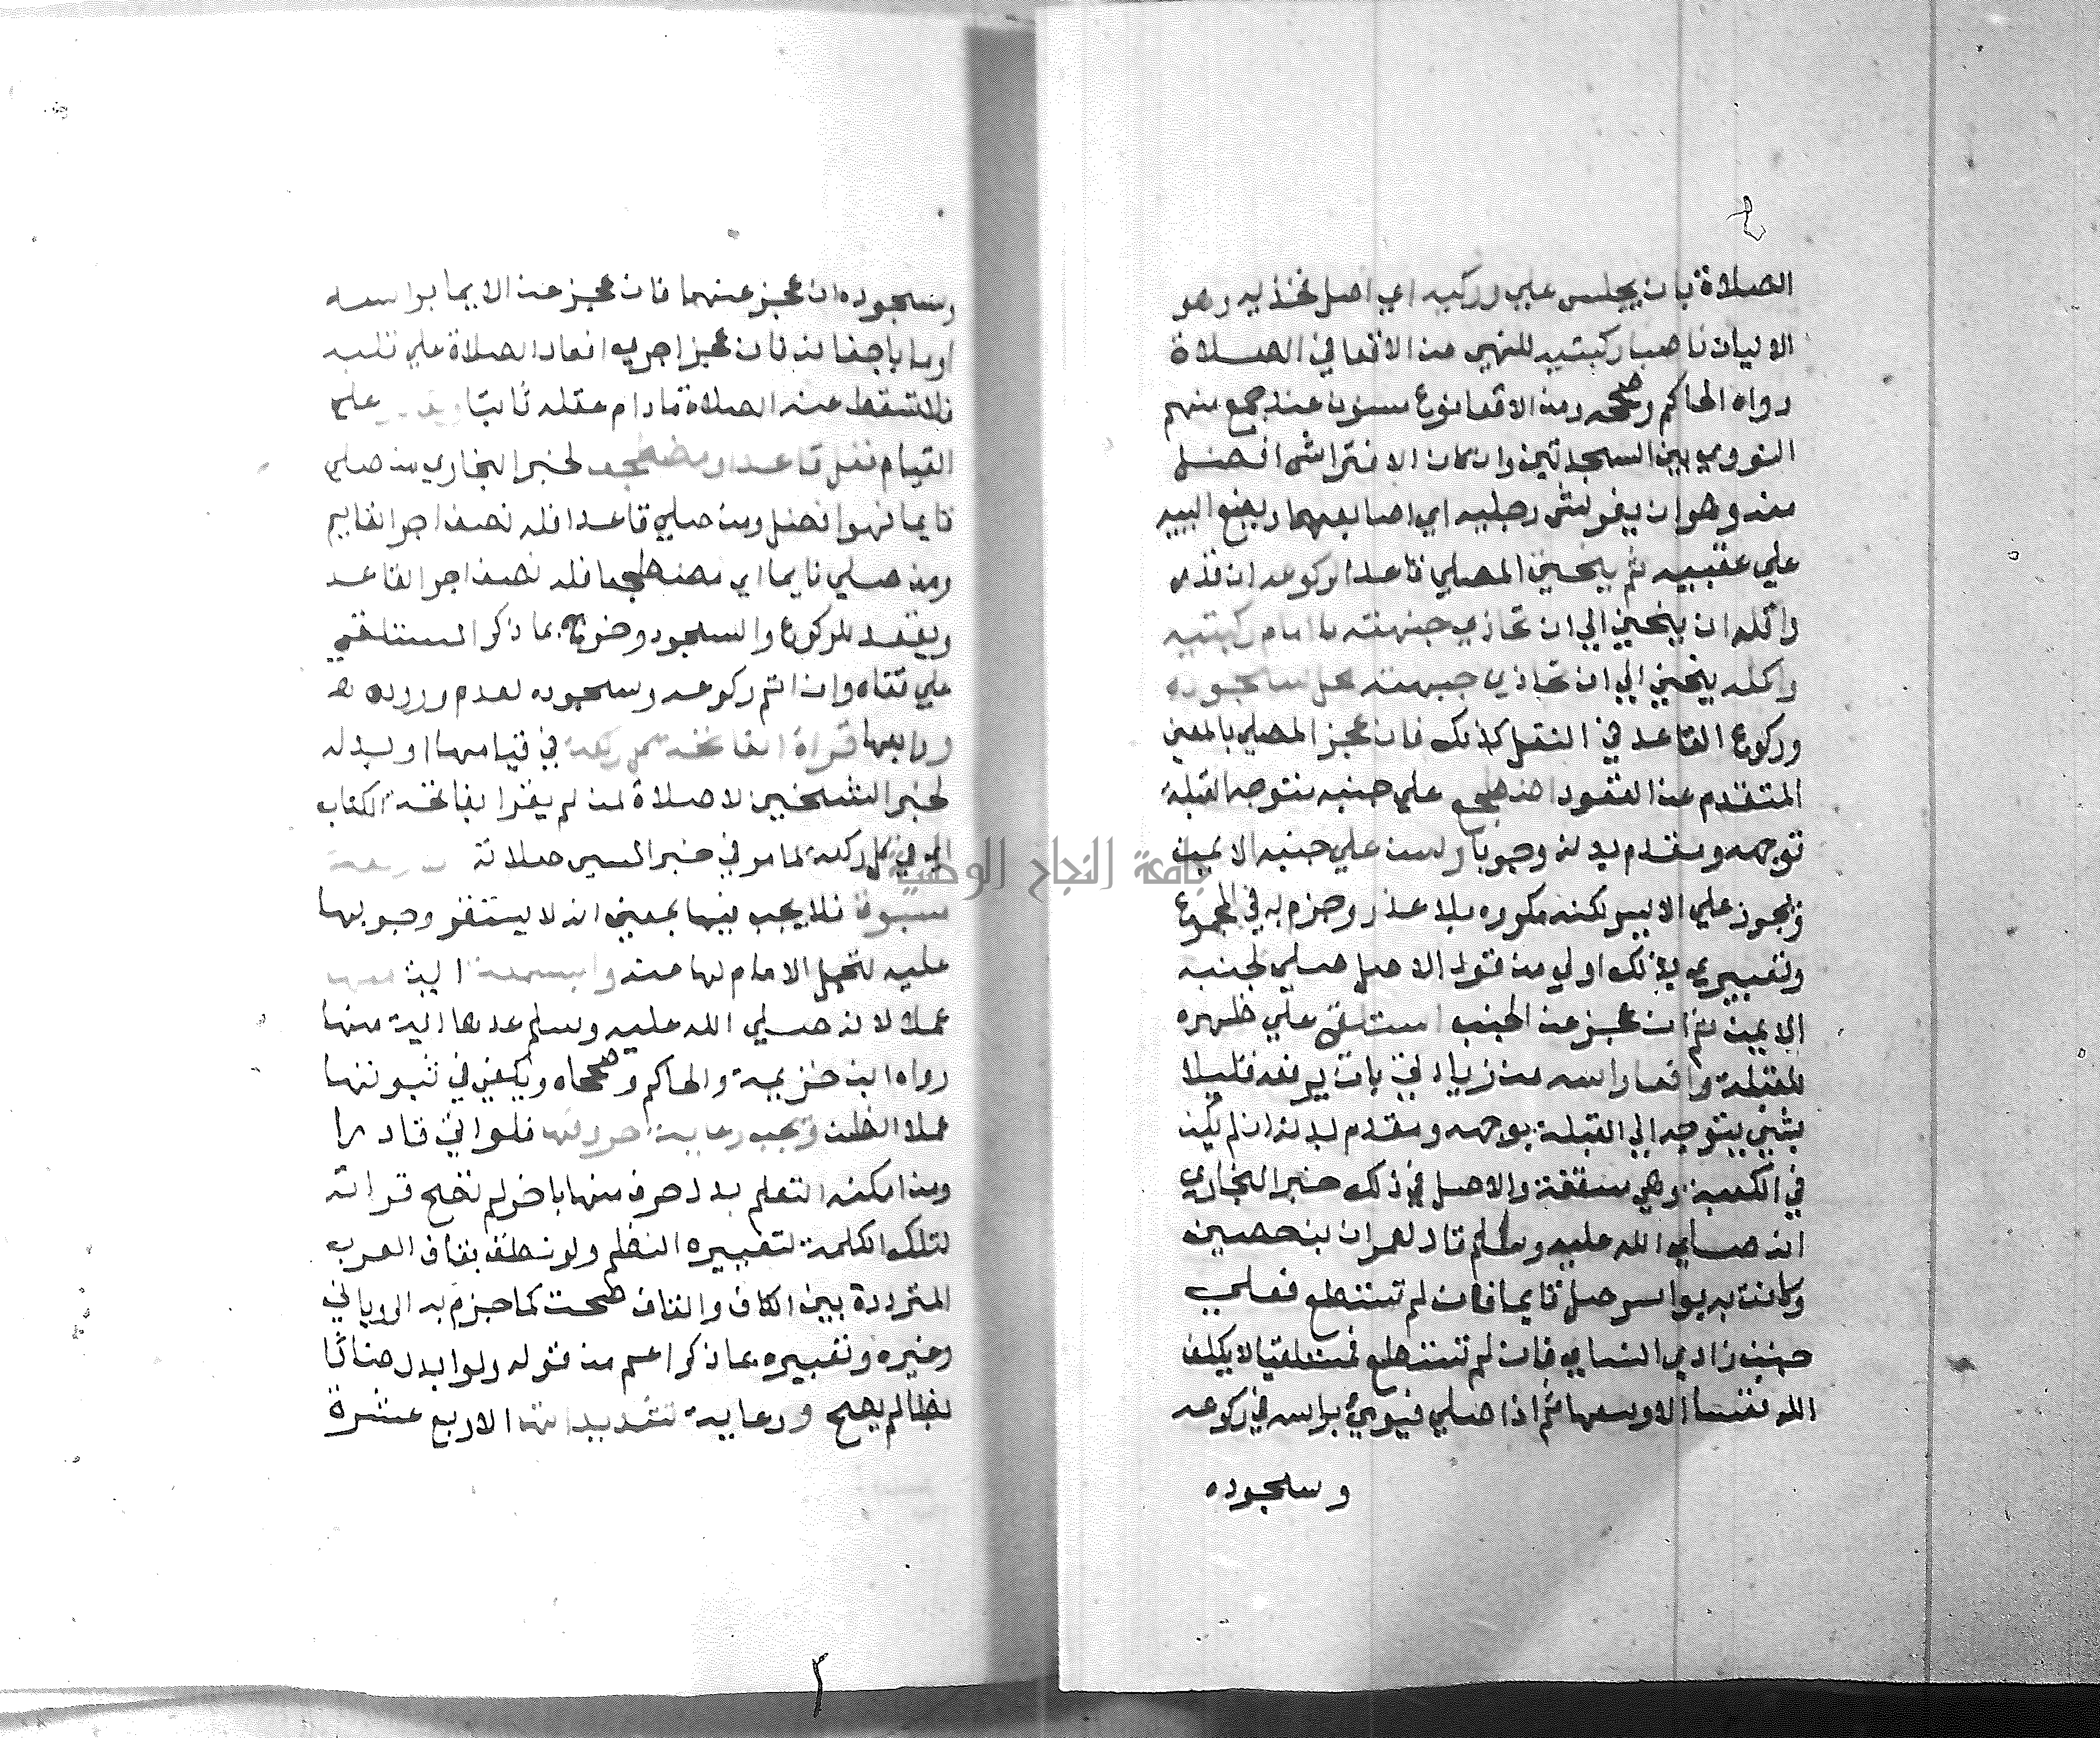 الصلاة بان يجلس علي وركيه اي اصل فخذيه وهو
الاليان ناصبا ركبتيه للنهي عن الاقعا في الصلاة
رواه الحاكم وصححه ومن الاقعا نوع مسنون عند جمع منهم
النووي بين السجدتين وان كان الافتراش افضل
منه وهو ان يفرش رجليه اي اصابعهما ويضع الييه
علي عقبيه ثم ينحني المصلي قاعدا لركوعه ان قدر
واقله ان ينحني الي ان تحاذي جبهته ما امام ركبتيه
واكله ينحني الي ان تحاذي جبهته محل سجوده
وركوع القاعد في النفل كذلك فان عجز المصلي بالمعني
المتقدم عن القعود اضطجع علي جنبه متوجه القبلة
توجهه ومقدم بدنه وجوبا وسن علي جنبه الايمن
ويجوز علي الايسر لكنه مكروه بلا عذر وجزم به في المجموع
وتعبيري بذلك اولي من قول الاصل صلي لجنبه
الايمن ثم ان عجز عن الجنب استلقي علي ظهره
للقبلة رافعا راسه من زيادتي بان يرفعه قليلا
بشيي ليتوجه الي القبلة بوجهه ومقدم بدنه ان لم يكن
في الكعبة وهي مسقفة والاصل في ذلك خبر البخاري
انه صلي الله عليه وسلم قال لعمران بن حصين
وكانت به بواسير صل قايما فان لم تستطع فعلي
جنب زاد النساي فان لم تستطع فمستلقيا لا يكلف
الله نفسا الا وسعها ثم اذا صلي فيومي براسه في ركوعه
وسجوده
وسجوده ان عجز عنهما فان عجز عن الايما براسه
اوما باجفانه فان عجز اجري افعال الصلاة علي قلبه
فلا تسقط عنه الصلاة مادام عقله ثابتا علي
القيام نفل قاعدا ومضطجعا لخبر البخاري من صلي
قايما فهو افضل ومن صلي قاعدا فله نصف اجر القايم
ومن صلي نايما اي مضطجعا فله نصف اجر القاعد
ويقعد للركوع والسجود وخرج بما ذكر المستلقي
علي قفاه وان اتم ركوعه وسجوده لعدم وروده
ورابعها قراة الفاتحة كل ركعة في قيامها او بدله
لخبر الشيخين لا صلاة لمن لم يقرا بفاتحة الكتاب
اي في كل ركعة لما مر في خبر المسي صلاته
مسبوق فلا يجب فيها بمعني انه لا يستقر وجوبها
عليه لتحمل الامام لها عنه والبسملة اية منها
عملا لانه صلي الله عليه وسلم عدها اية منها
رواه ابن خزيمة والحاكم وصححاه ويكفي في ثبوتها
عملا الظن وتجب رعاية حروفها فلو اتي قادرا
ومن امكنه التعلم بدل حرف منها باخر لم تصح قراته
لتلك الكلمة لتغييره النظم ولو نطق بقاف العرب
المترددة بين الكاف والقاف صحت كما جزم به الروياني
وغيره وتعبيره بما ذكر اعم من قوله ولو ابدل ضادا
بظا لم يصح ورعاية تشديداتها الاربع عشرة